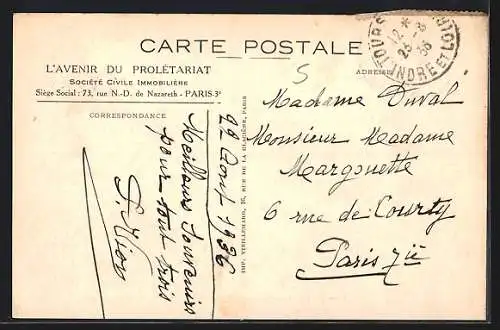 CARTE POSTALE
L'AVENIR DU PROLÉTARIAT
SOCIÉTÉ CIVILE IMMOBILIÈRE
Siège Social : 73, rue N.-D. de Nazareth - PARIS-3e
CORRESPONDANCE
ADRESSE
5
TOURS
INDRE ET LOIRE
12 * 3
25 - 8
36
22 Aout 1936
Meilleurs Souvenirs
pour tout trois
IMP. VIEILLEMARD, 16, RUE DE LA GLACIÈRE, PARIS
Madame Duval
Monsieur Madame
Margouette
6 rue de Courty
Paris 7ie